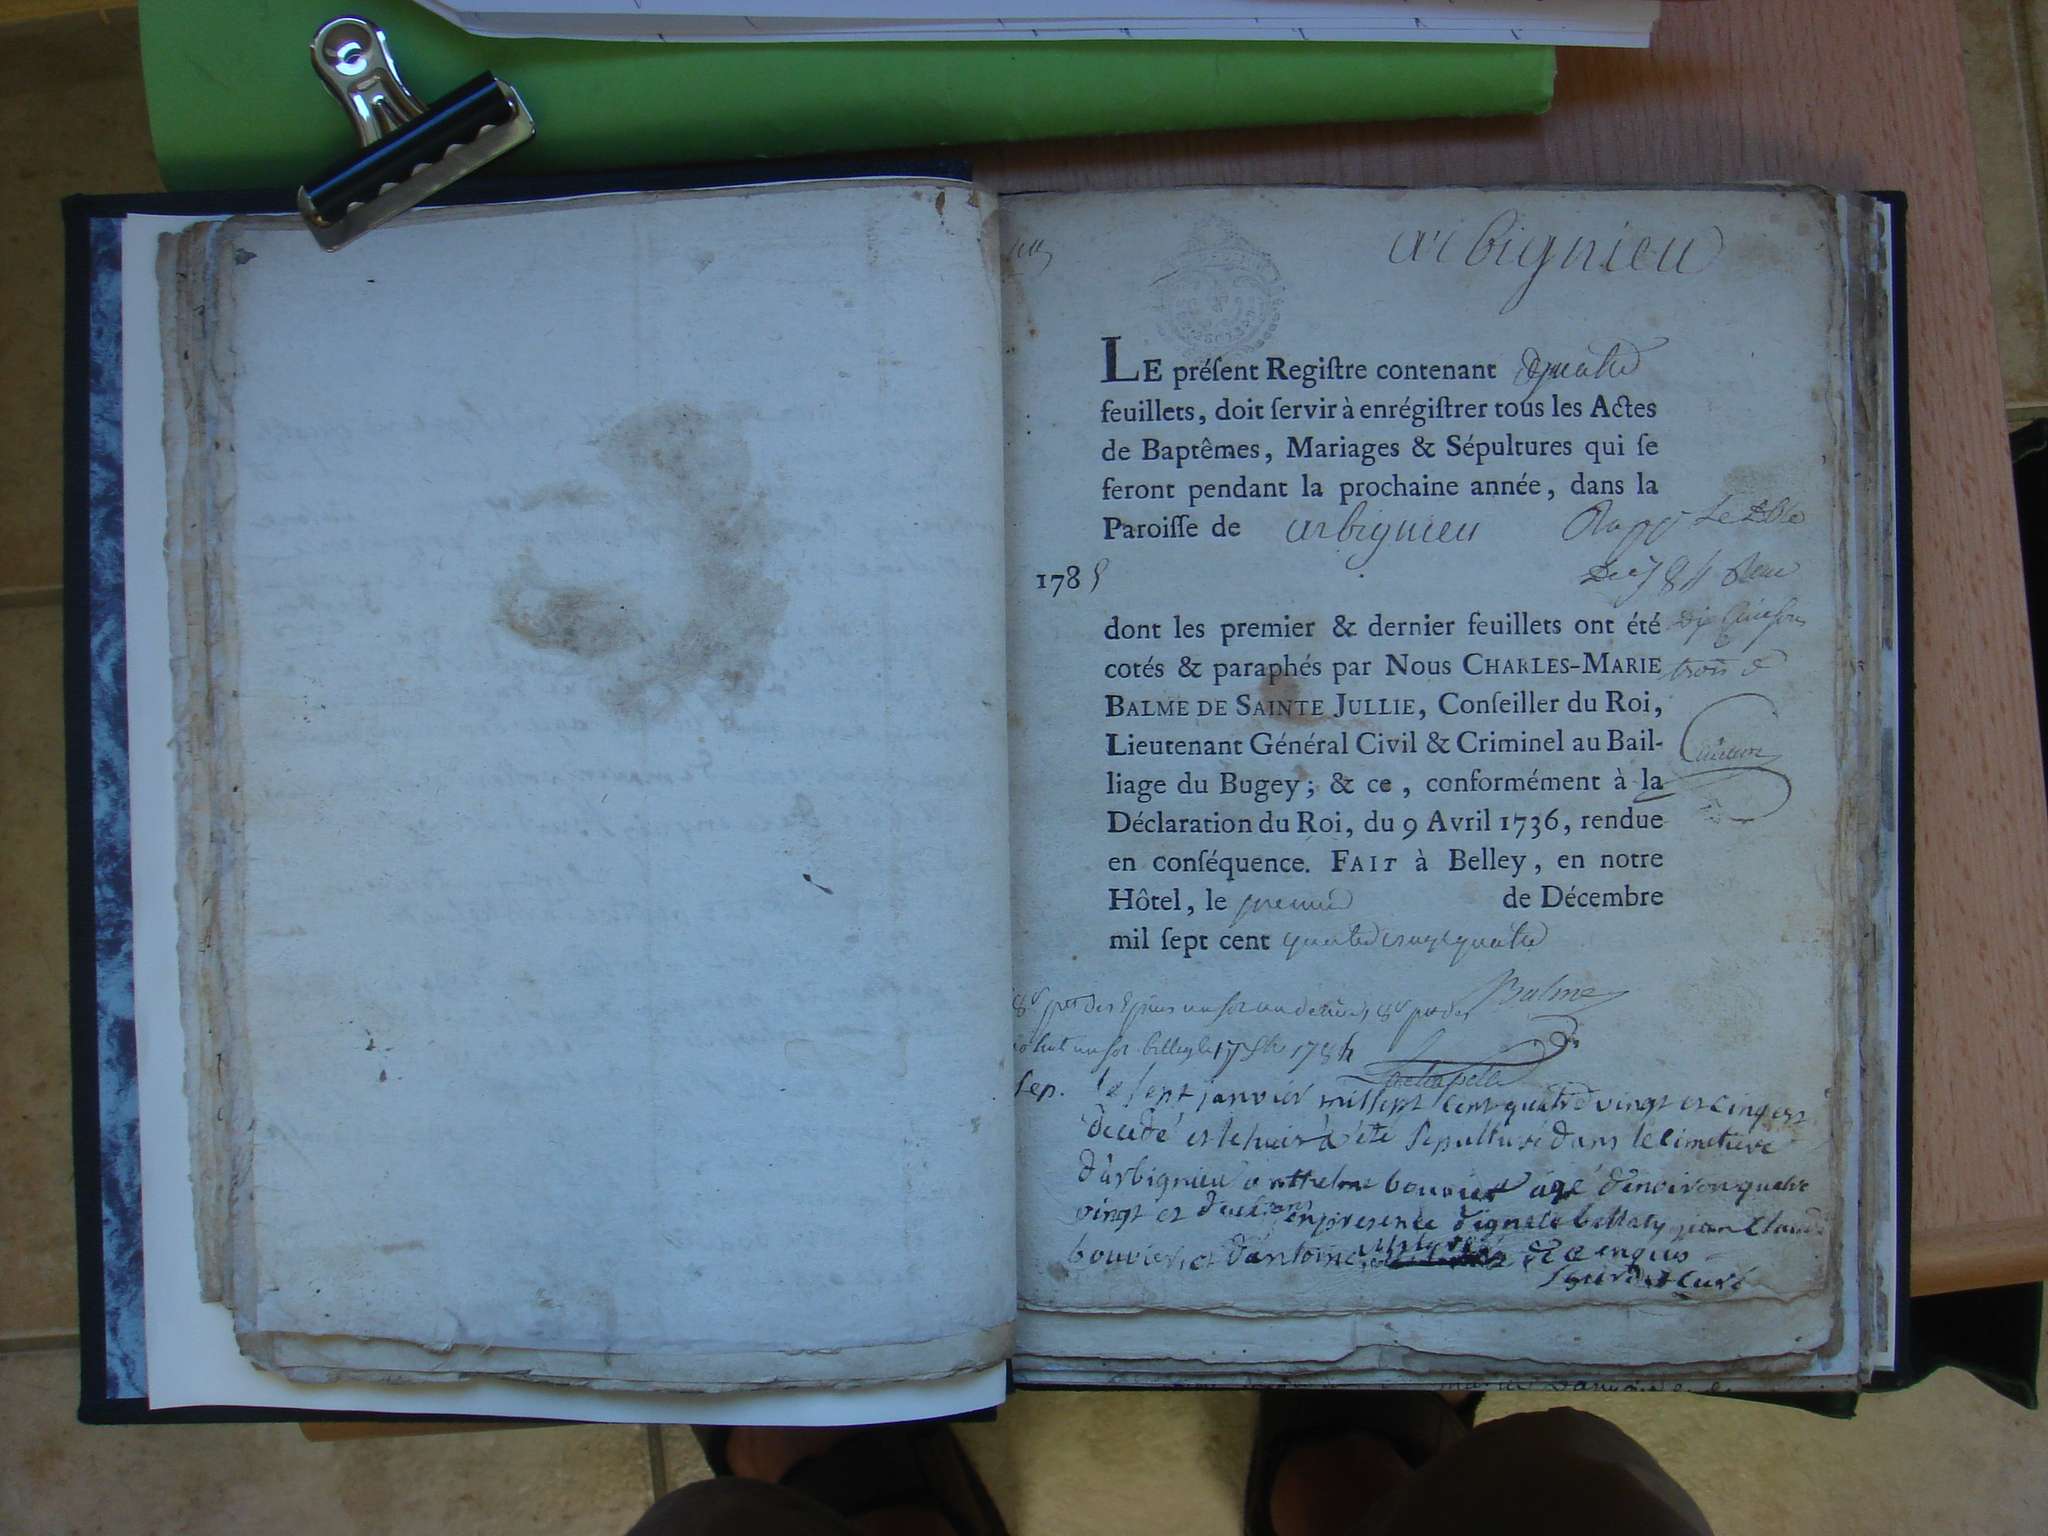 arbignieu
LE préſent Regiſtre contenant quatre
feuillets, doit ſervir à enrégiſtrer tous les Actes
de Baptêmes, Mariages & Sépultures qui ſe
feront pendant la prochaine année, dans la
Paroiſſe de arbignieu
1785
dont les premier & dernier feuillets ont été
cotés & paraphés par Nous CHARLES-MARIE
BALME DE SAINTE JULLIE, Conſeiller du Roi,
Lieutenant Général Civil & Criminel au Bail-
liage du Bugey; & ce, conformément à la
Déclaration du Roi, du 9 Avril 1736, rendue
en conſéquence. FAIT à Belley, en notre
Hôtel, le premier de Décembre
mil ſept cent quatre vingt quatre
Balme
belley le 17 1784
Sep. le sept janvier mil sept cent quatre vingt et cinq est
decedé et le huit a été sepulturé dans le cimetiere
d'arbignieu anthelme bouvier agé d'environ quatre
vingt et deux ans en presence d'ignace bellaty jean claude
bouvier et d'antoine de enquis
curé